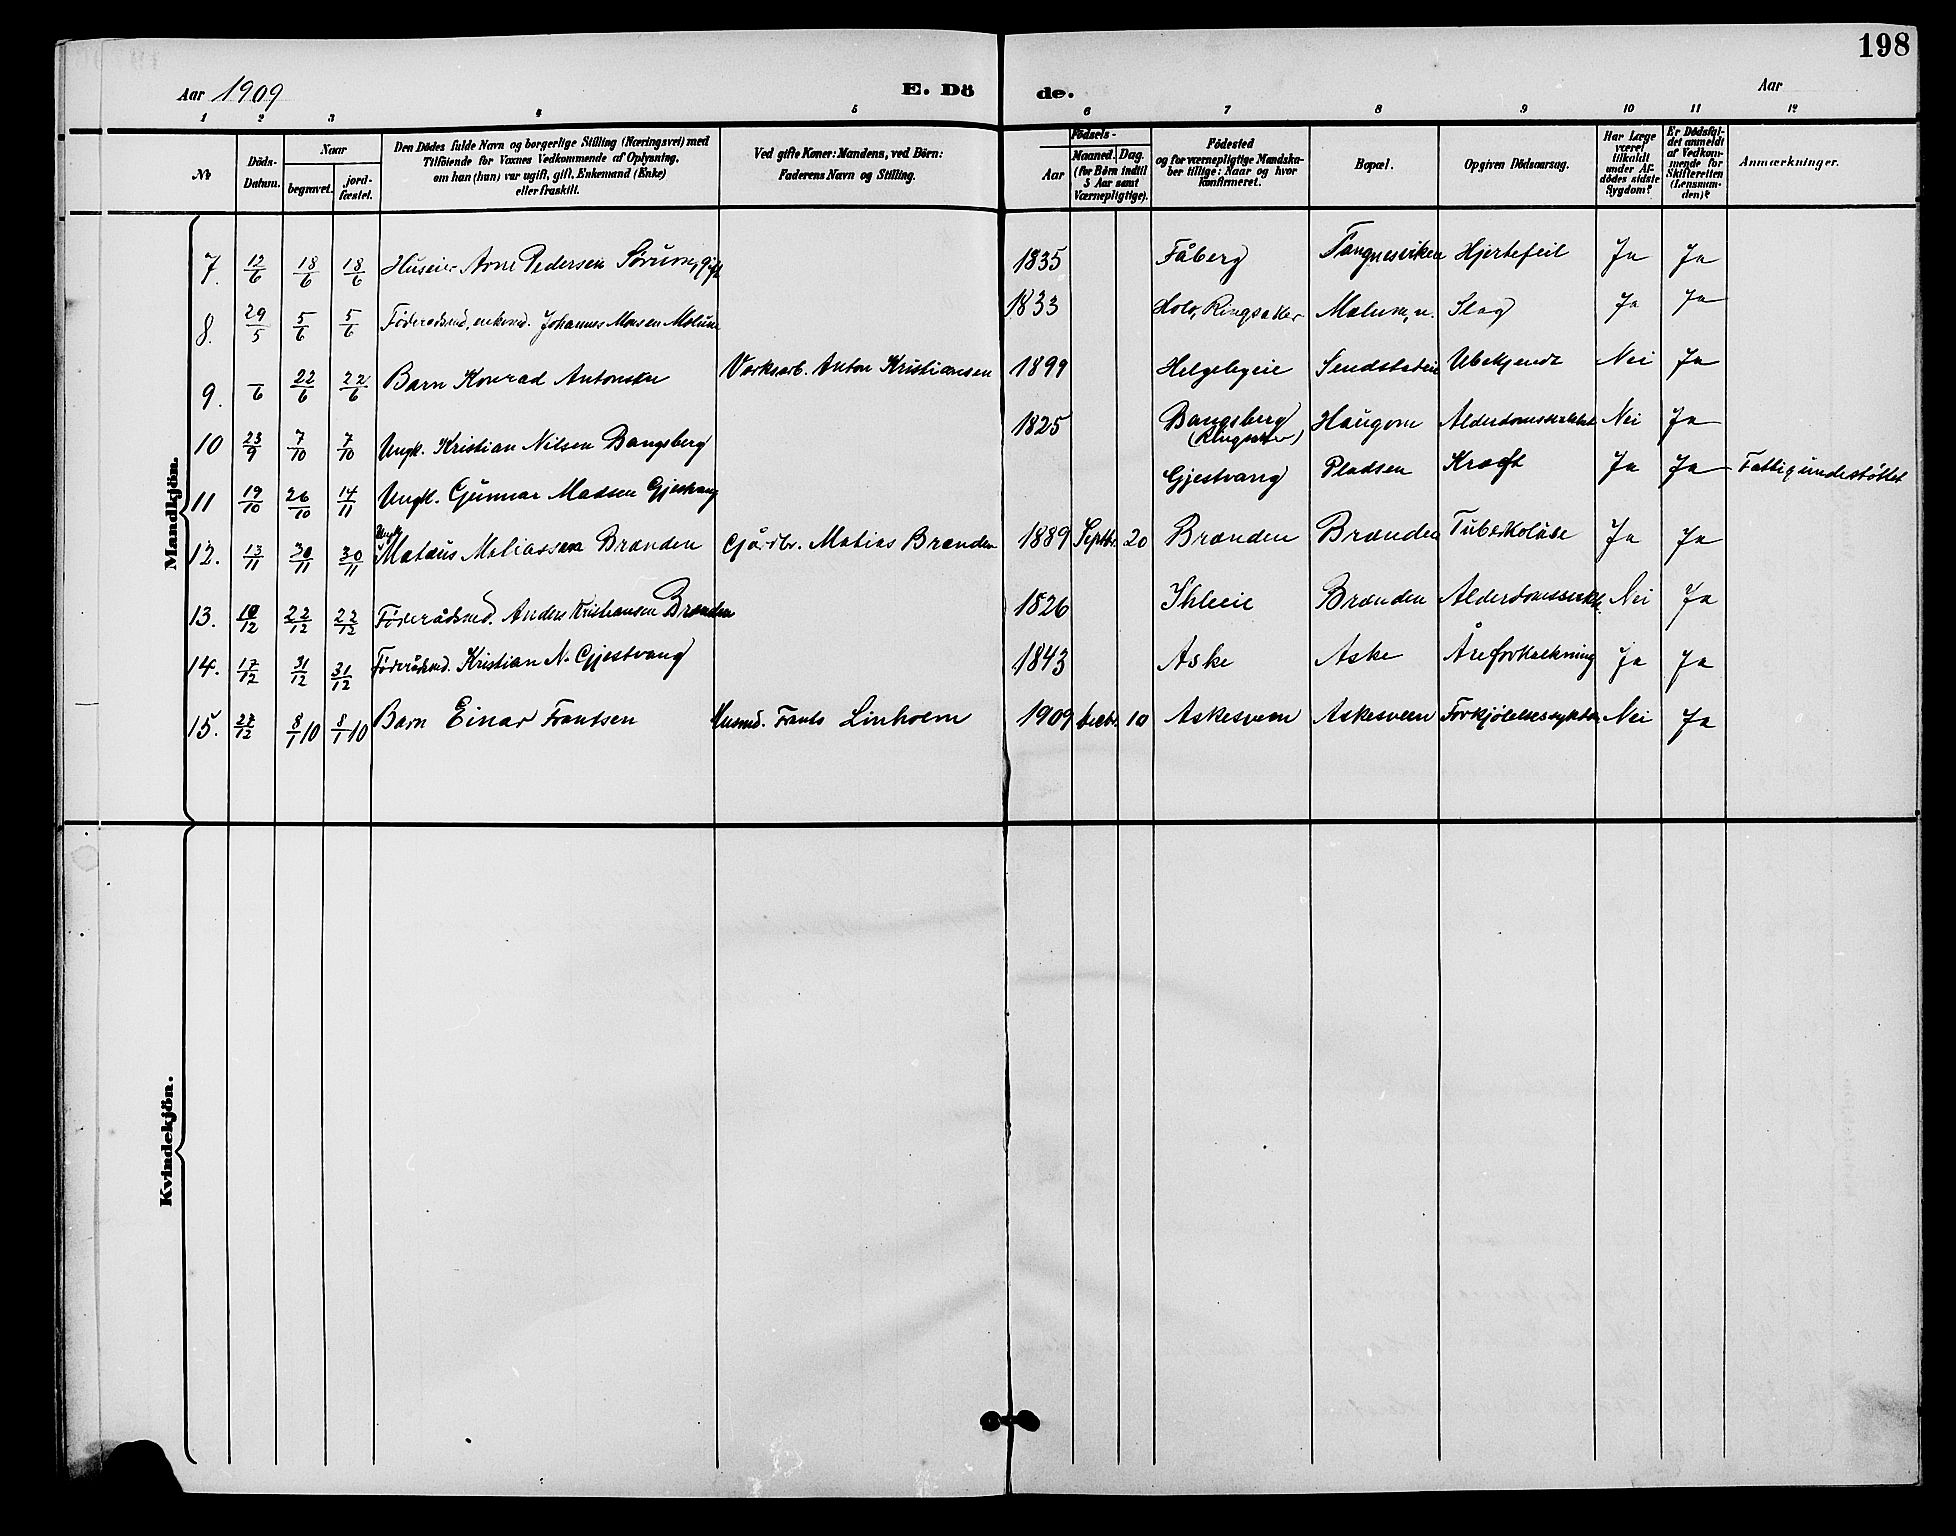 198
Aar 1909 E. Dö de. Aar
1 2 3 4 5 6 7 8 9 10 11 12
№ Döds-Datum. Naar begravet. jord-fæstet. Den Dödes fulde Navn og borgerlige Stilling (Næringsvei) med Tilföiende for Voxnes Vedkommende af Oplysning, om han (hun) var ugift, gift, Enkemand (Enke) eller fraskilt. Ved gifte Koner: Mandens, ved Börn: Faderens Navn og Stilling. Födsels- Aar Maaned. Dag. (for Börn indtil 5 Aar samt Værnepligtige). Födested og for værnepligtige Mandskaber tillige: Naar og hvor konfirmeret. Bopæl. Opgiven Dödsaarsag. Har Læge været tilkaldt under Afdödes sidste Sygdom? Er Dödsfaldet anmeldt af Vedkommende for Skifteretten (Lensmanden)? Anmærkninger.
Mandkjön.
7. 12/6 18/6 18/6 Huseier Arne Pedersen Sørum, gift 1835 Fåberg Hjertefeil Ja Ja
8. 29/5 5/6 5/6 Føderådsmd, enkemd. Johannes Moluм 1833 Holo, Ringsaker Molum, n. Slag Ja Ja
9. –/6 22/6 22/6 Barn Konrad Antonsen Verksarb. Anton Kristiansen 1899 Helgebyeie Sendstadeie Ubekjendt Nei Ja
10 23/9 7/10 7/10 Ungk. Kristian Nilsen Bangsberg 1825 Bangsberg (Ringsaker) Haugom Nei Ja
11 19/10 26/10 14/11 Ungk. Gunnar Madsen Gjestvang Gjestvang Pladsen Kræft Ja Ja Fattigunderstøttet
12. 13/11 30/11 30/11 Ungk. Mataus Matiassen Brænden Gårdbr. Matias Brænden 1889 Septbr. 20 Brænden Brænden Tuberkulose Ja Ja
13. 10/12 22/12 22/12 Føderådsmd. Anders Kristiansen Brænden 1826 Ihleeie Brænden Nei Ja
14. 17/12 31/12 31/12 Føderådsmd. Kristian N. Gjestvang 1843 Aske Aske Åreforkalkning Ja Ja
15. 28/12 8/1 10 8/1 10 Barn Einar Frantsen Husmd. Frants Linholm 1909 decbr. 10 Askesveen Askesveen Nei Ja
Kvindekjön.